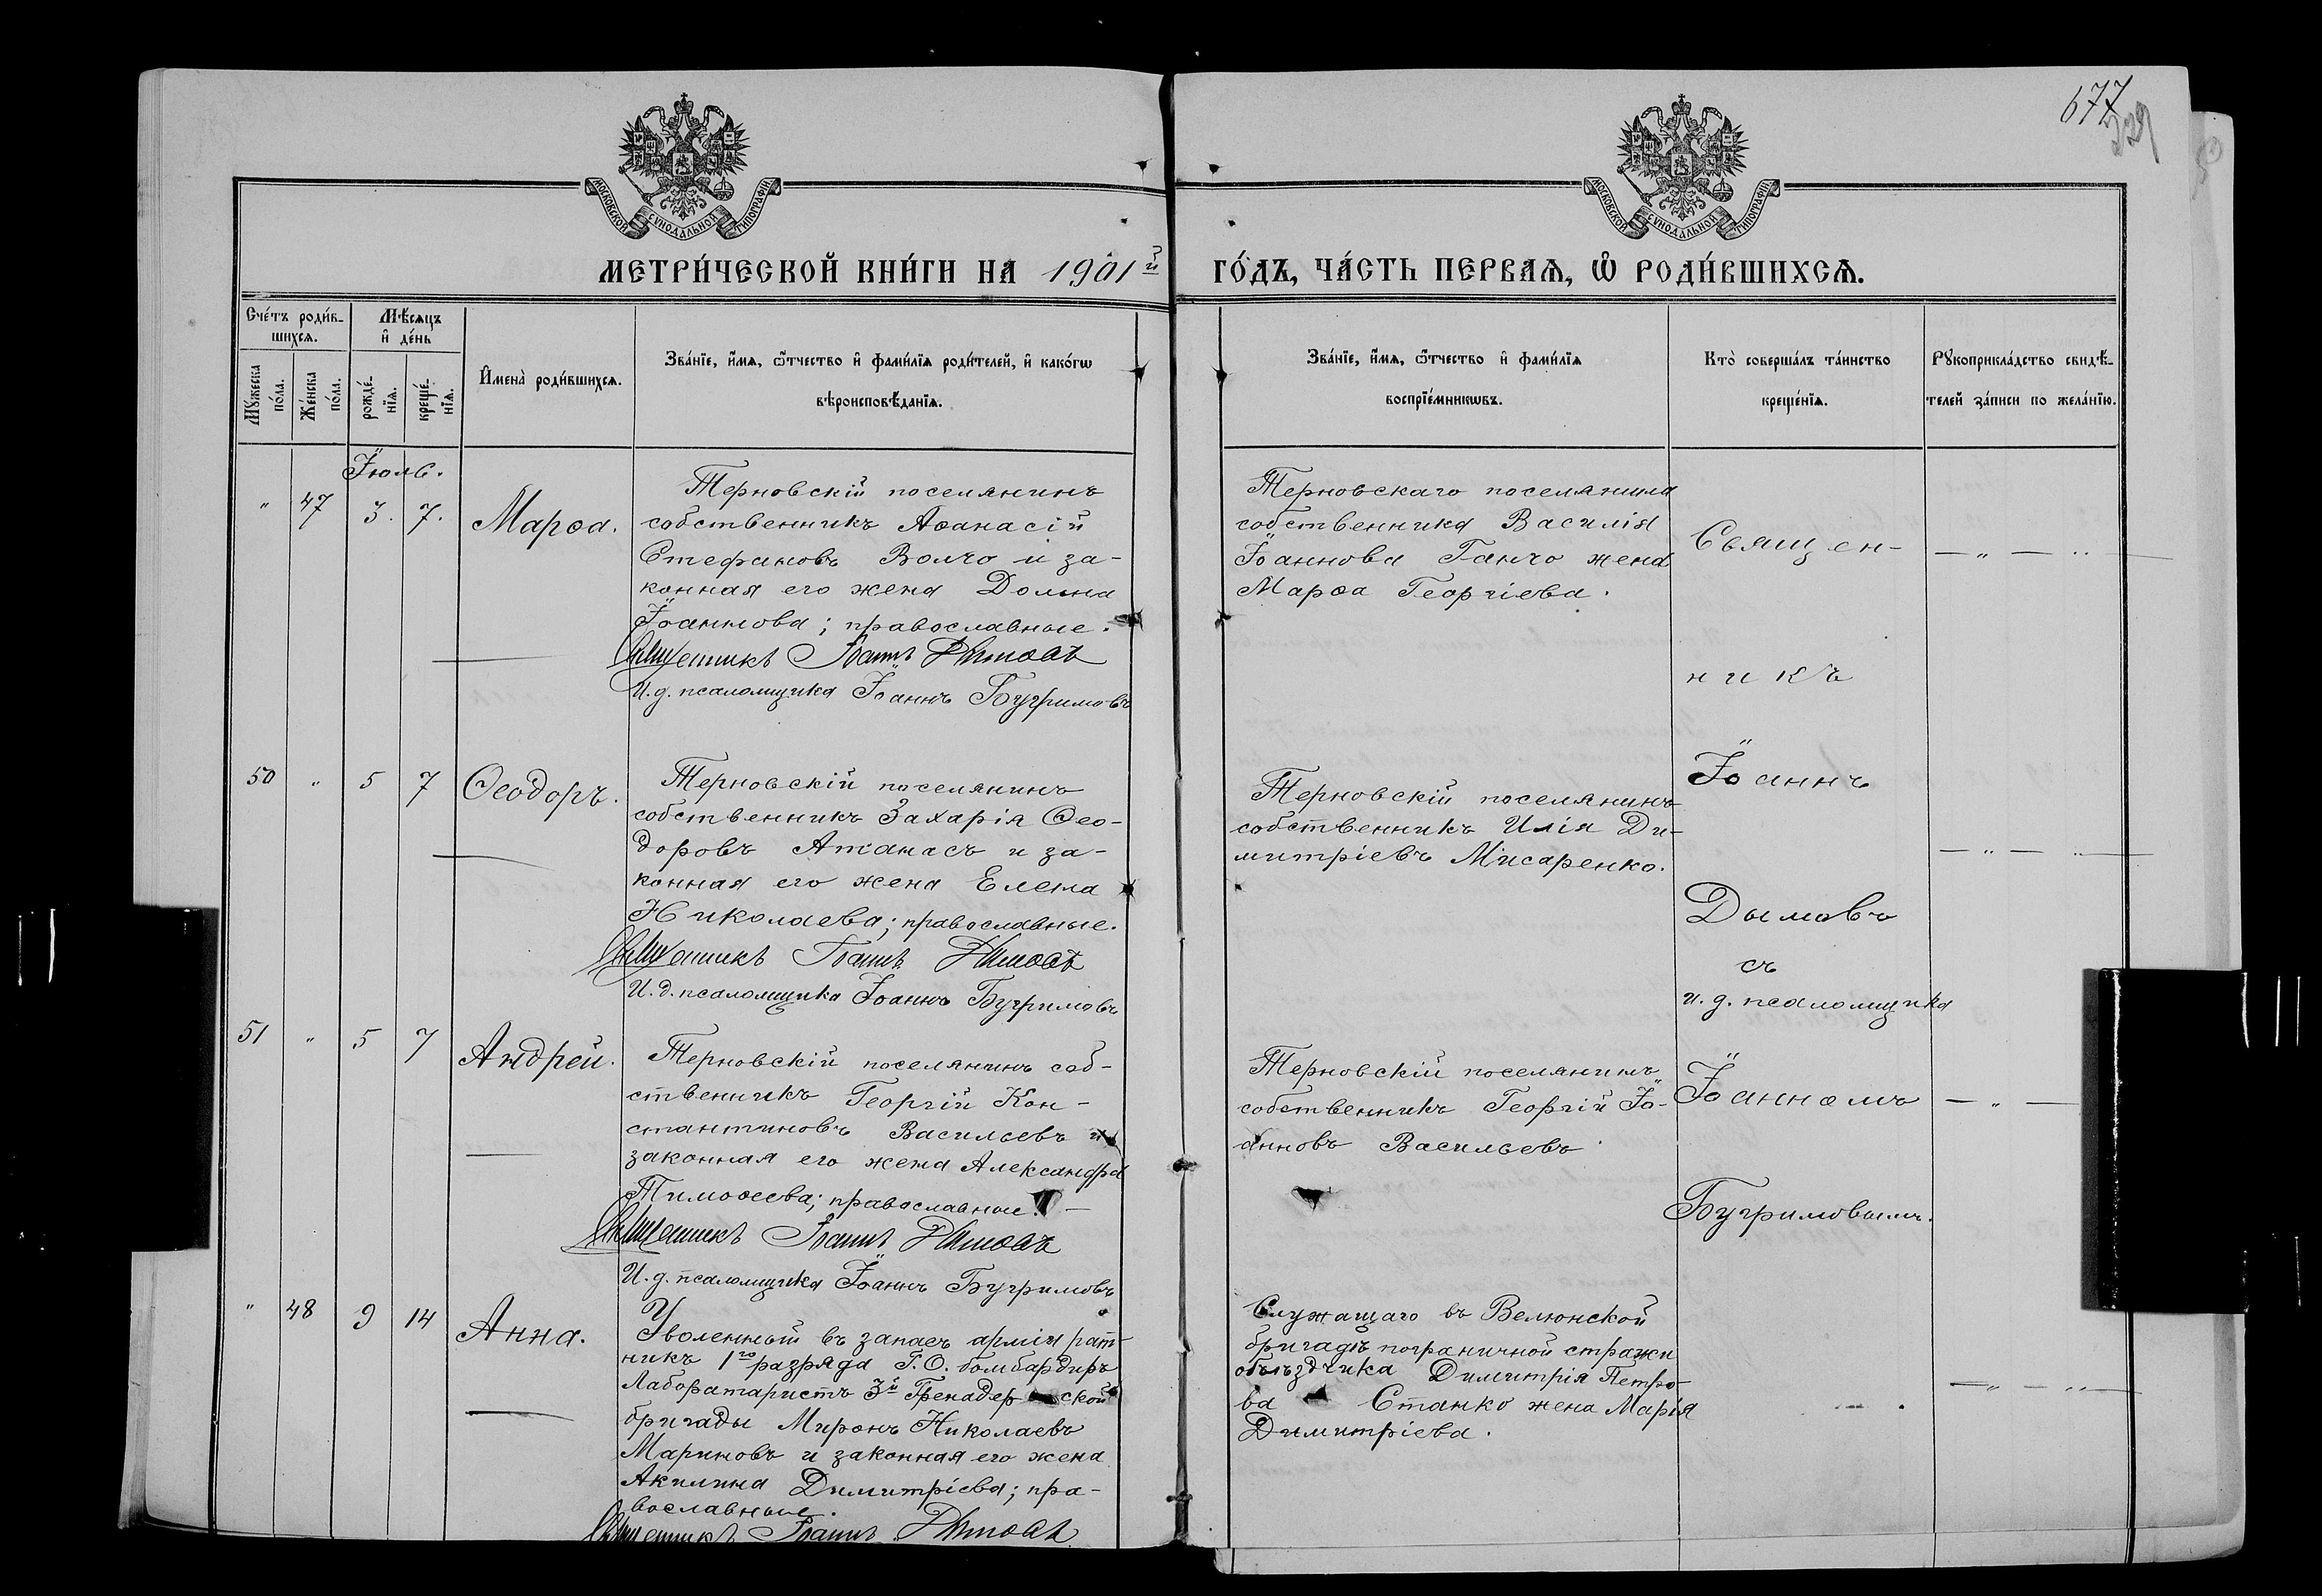 677
329
МОСКОВСКОЙ СУНОДАЛЬНОЙ ТИПОГРАФІИ
МОСКОВСКОЙ СУНОДАЛЬНОЙ ТИПОГРАФІИ
МЕТРИ́ЧЕСКОЙ КНИ́ГИ НА 1901й
ГО́ДЪ, ЧА́СТЬ ПЕРВАѦ, Ѡ РОДИ́ВШИХСѦ.
Сче́тъ роди́в-
шихсѧ.
Мужеска по́ла.
Же́нска по́ла.
Мѣсѧцъ
и де́нь
рожде́-
нїѧ.
креще́-
нїѧ.
Имена̀ роди́вшихсѧ.
Зва́нїе, и́мѧ, ѻ́тчество и фами́лїѧ роди́телей, и како́гѡ
вѣроисповѣ́данїѧ.
Зва́нїе, и́мѧ, ѻ́тчество и фами́лїѧ
воспрїе́мникѡвъ.
Кто̀ соверша́лъ та́инство
креще́нїѧ.
Рукоприкла́дство свидѣ́-
телей за́писи по жела́нїю.
Іюль.
" 47 3. 7. Марѳа.
Терновскій поселянинъ
собственникъ Аѳанасій
Стефановъ Волчо и за-
конная его жена Домна
Іоаннова; православные.
Священникъ Іоаннъ Дымовъ
И. д. псаломщика Іоаннъ Бугримовъ
Терновскаго поселянина
собственника Василія
Іоаннова Ганчо жена
Марѳа Георгіева.
Священ-
никъ
50 " 5 7 Ѳеодоръ.
Терновскій поселянинъ
собственникъ Захарія Ѳео-
доровъ Атанасъ и за-
конная его жена Елена
Николаева; православные.
Священникъ Іоаннъ Дымовъ
И. д. псаломщика Іоаннъ Бугримовъ
Терновскій поселянинъ
собственникъ Илія Ди-
митріевъ Мисаренко.
Іоаннъ
Дымовъ
съ
и. д. псаломщика
51 " 5 7 Андрей.
Терновскій поселянинъ соб-
ственникъ Георгій Кон-
стантиновъ Васильевъ и
законная его жена Александра
Тимоѳеева; православные.
Священникъ Іоаннъ Дымовъ
И. д. псаломщика Іоаннъ Бугримовъ
Терновскій поселянинъ
собственникъ Георгій Іо-
анновъ Васильевъ.
Іоанномъ
Бугримовымъ.
" 48 9 14 Анна.
Уволенный въ запасъ арміи рат-
никъ 1го разряда Г. О. бомбардиръ
Лаборатористъ 3й Гренадерской
бригады Миронъ Николаевъ
Мариновъ и законная его жена
Акилина Димитріева; пра-
вославные.
Священникъ Іоаннъ Дымовъ
Служащаго въ Велюнской
бригадѣ пограничной стражи
объѣздчика Димитрія Петро-
ва Станко жена Марія
Димитріева.